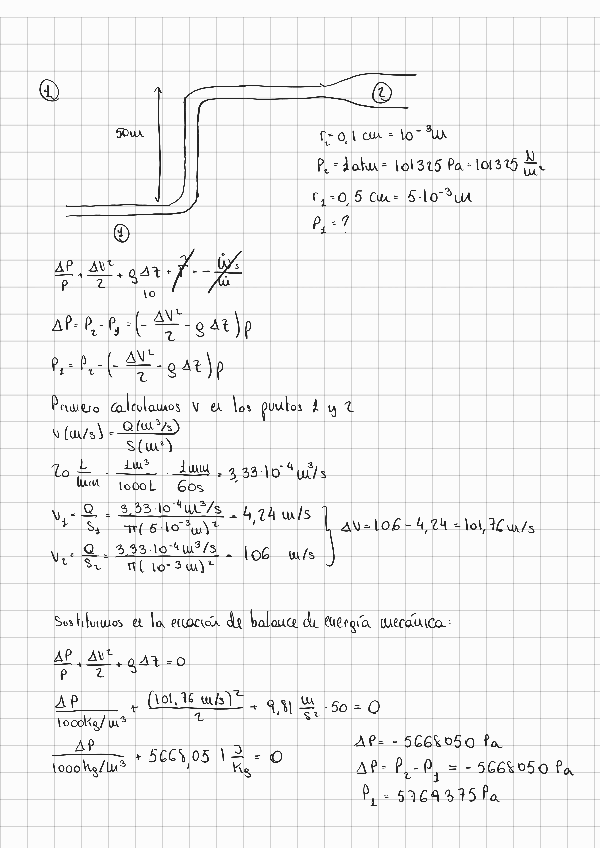 ①
②
50m
r₂= 0,1 cm = 10⁻³m
P₂ = 1 atm = 101325 Pa = 101325 N/m²
r₁ = 0,5 cm = 5·10⁻³m
P₁ = ?
①
ΔP/ρ + ΔV²/2 + gΔz + F = - Ẇs/ṁ
10
ΔP = P₂ - P₁ = (- ΔV²/2 - g Δz) ρ
P₁ = P₂ - (- ΔV²/2 - g Δz) ρ
Primero calculamos v en los puntos 1 y 2
v(m/s) = Q(m³/s)/S(m²)
20 L/min · 1m³/1000L · 1min/60s = 3,33·10⁻⁴ m³/s
V₁ = Q/S₁ = 3,33·10⁻⁴m³/s / π(5·10⁻³m)² = 4,24 m/s
ΔV = 106 - 4,24 = 101,76 m/s
V₂ = Q/S₂ = 3,33·10⁻⁴m³/s / π(10-3m)² = 106 m/s
Sustituimos en la ecuación de balance de energía mecánica:
ΔP/ρ + ΔV²/2 + g Δz = 0
ΔP/1000kg/m³ + (101,76 m/s)²/2 + 9,81 m/s² · 50 = 0
ΔP/1000kg/m³ + 5668,051 J/kg = 0
ΔP = - 5668050 Pa
ΔP = P₂ - P₁ = - 5668050 Pa
P₁ = 5769375 Pa